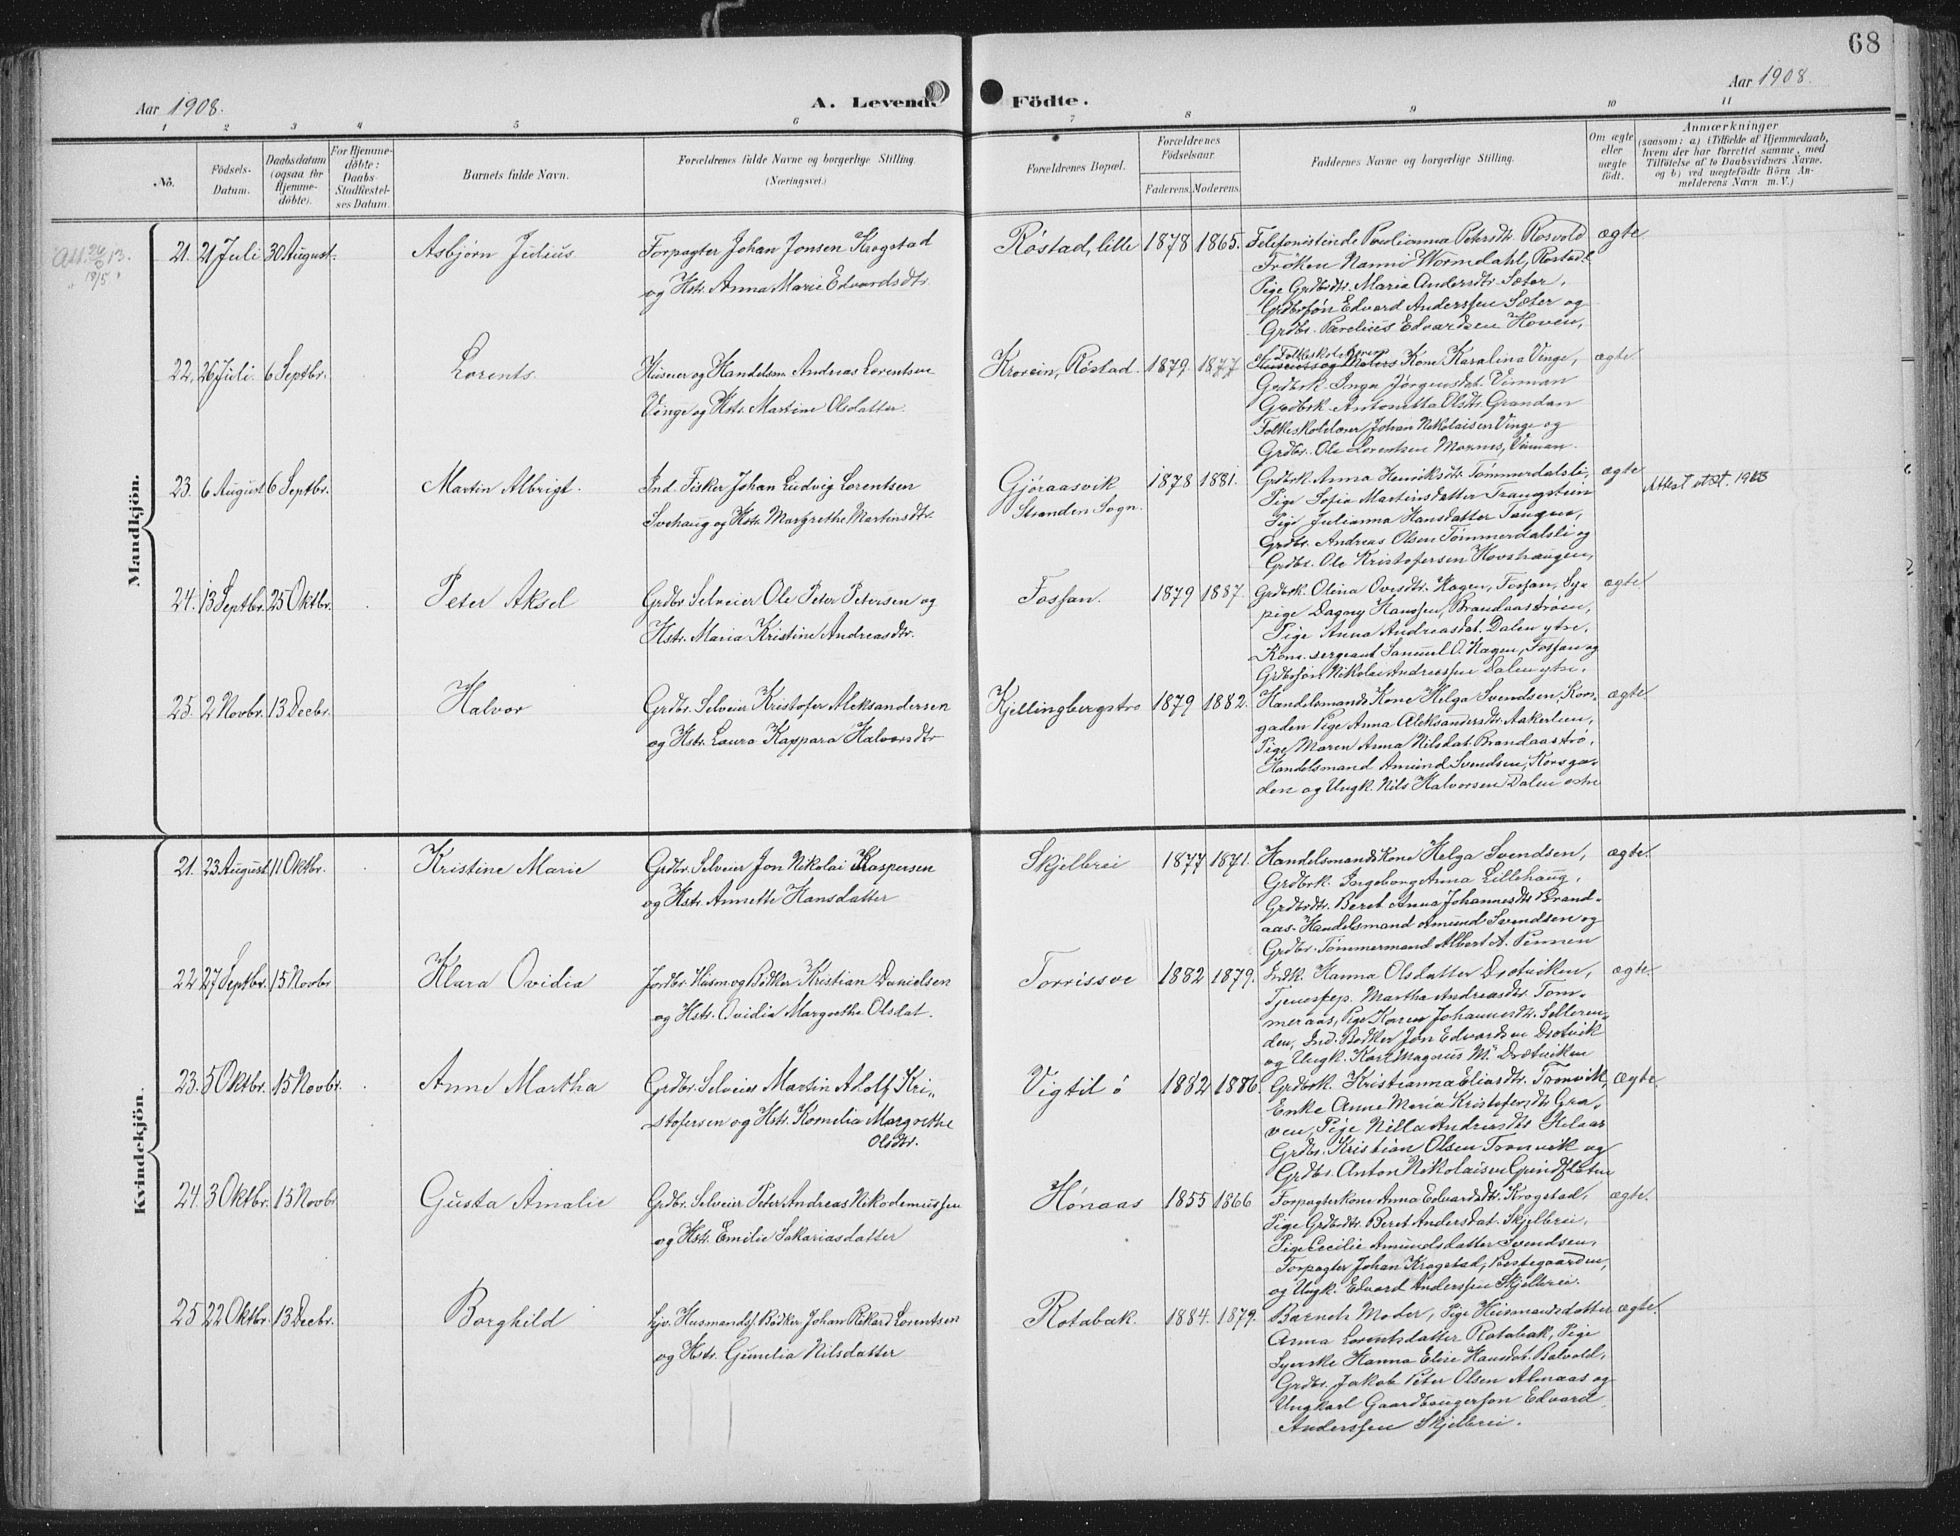 68
Aar 1908.
A. Levende Fødte.
Aar 1908.
1 2 3 4 5 6 7 8 9 10 11
No.
Födsels-Datum.
Daabsdatum (ogsaa for Hjemme-döbte).
For Hjemme-döbte: Daabs-Stadfæstelses Datum.
Barnets fulde Navn.
Forældrenes fulde Navne og borgerlige Stilling. (Næringsvei.)
Forældrenes Bopæl.
Forældrenes Födselsaar.
Faderens. Moderens.
Faddernes Navne og borgerlige Stilling.
Om ægte eller uægte födt.
Anmærkninger
(saasom: a) i Tilfælde af Hjemmedaab, hvem der har forrettet samme, med Tilföielse af to Daabsvidners Navne, og b) ved uægtefödte Börn Anmelderens Navn m. V.)
Mandkjön.
21. 21 Juli 30 August Asbjørn Julius
Forpagter Johan Jonsen Krogstad
og Hstr. Anna Marie Edvardsdtr.
Røstad, lille 1878 1865.
Telefonistinde Paulianna Petersdtr. Rosvold
Frøken Nanni Wormdahl, Røstad l.
Pige Grdbrdtr. Maria Andersdtr. Sæter,
Grdbrsøn Edvard Anderssen Sæter og
Grdbr. Parelius Edvardsen Hoven,
ægte
22. 26 Juli 6 Septbr. Lorents
Huseier og Handelsm. Andreas Lorentsen
Vinge og Hstr. Martine Olsdatter.
Krovein, Røstad. 1879. 1877
Kone Karalina Vinge,
Grdbrk. Inga Jørgensdat. Vinnan
Grdbrk. Antonetta Olsdtr. Grandan
Folkeskolelærer Johan Nikolaisen Vinge og
Grdbr. Ole Lorentsen Moxnes, Vinnan.
ægte
23. 6 August 6 Septbr. Martin Albrigt.
Ind. Fisker Johan Ludvig Lorentsen
Svehaug og Hstr. Margrethe Martinsdtr.
Gjøraasvik
Stranden Sogn.
1878 1881.
Grdbrk. Anna Henriksdtr. Tømmerdalsli,
Pige Sofia Martinsdatter Trangstein
Pige Julianna Hansdatter Tangen,
Grdbr. Andreas Olsen Tømmerdalsli og
Grdbr. Ole Kristofersen Hovshaugen,
ægte
Attest utst. 1943
24. 13 Septbr. 25 Oktbr. Peter Aksel
Grdbr. Selveier Ole Peter Petersen og
Hstr. Maria Kristine Andreasdtr.
Fosfan. 1879 1887.
Grdbrk. Olina Ovesdtr. Hagen, Fosfan, Sy-
pige Dagny Hanssen, Brandaastrøen,
Pige Anna Andreasdat. Dalen ytre,
Kom. sergeant Samuel O. Hagen, Fosfan og
Grdbrsøn Nikolai Andreassen Dalen ytre.
ægte
25. 2 Novbr. 13 Decbr. Halvor
Grdbr. Selveier Kristofer Aleksandersen
og Hstr. Laura Kaspara Halvorsdtr
Kjellingbergstrø 1879 1882.
Handelsmands Kone Helga Svendsen, Kors-
gaden Pige Anna Aleksandersdtr. Aakerlien,
Pige Maren Anna Nilsdat. Brandaastrø,
Handelsmand Amund Svendsen, Korsga-
den og Ungk. Nils Halvorsen Dalen østre
ægte
Kvindekjön.
21. 23 August 11 Oktbr. Kristine Marie
Grdbr. Selveier Jon Nikolai Kaspersen
og Hstr. Annette Hansdatter
Skjelbrei 1877 1871.
Handelsmands Kone Helga Svendsen,
Grdbrk. Ingeborg Anna Lillehaug,
Grdbrdtr. Beret Anna Johannesdtr. Brand-
aas. Handelsmand Amund Svendsen og
Grdbr. Tømmermand Albert A. Pinnen
ægte.
22 27 Septbr. 15 Novbr Klara Ovidia
Jordbr. Husm og Bødker Kristian Danielsen
og Hstr. Ovidia Margrethe Olsdat.
Torrissve 1882 1879.
Indk. Hanna Olsdatter Drotviken,
Tjenestep. Martha Andreasdtr. Tom-
meraas, Pige Karen Johannesdtr.
den, Ind. Bødker Jon Edvardsen Drotvik
og Ungk. Karl Magnus M. Drotviken
ægte
23. 5 Oktbr. 15 Novbr. Anne Martha
Grdbr. Selveier Martin Adolf Kri-
stofersen og Hstr. Kornelia Margrethe
Olsdtr.
Vigtil ø 1882 1886.
Grdbrk. Kristianna Eliasdtr. Tronvik,
Enke Anne Maria Kristofersdtr. Gra-
ven, Pige Nilla Andreasdtr. Helaas
Grdbr. Kristian Olsen Tronvik og
Grdbr. Anton Nikolaisen Grindfletur
ægte.
24. 3 Oktbr. 15 Novbr Gusta Amalie
Grdbr. Selveier Peter Andreas Nikodemussen
og Hstr. Emilie Sakariasdatter
Hønaas 1855 1866
Forpagterkone Anna Edvardsdtr. Krogstad,
Pige Grdbrdtr. Beret Andersdat. Skjelbrei,
Pige Cecilie Amundsdatter Svendsen,
Forpagter Johan Krogstad, Prestegaarden,
og Ungk. Edvard Anderssen Skjelbrei.
ægte.
25 22 Oktbr. 13 Decbr. Borghild
Ljv. Husmand & Bødker Johan Rikard Lorentsen
og Hstr. Gunelia Nilsdatter
Rotabak. 1884. 1879.
Barnets Moder, Pige Husmansdatter
Anna Lorentsdatter Rotabak, Pige
Syerske Hanna Elise Hansdat. Balvold,
Grdbr. Jakob Peter Olsen Almaas og
Ungkarl Gaardbrugersøn Edvard
Anderssen Skjelbrei.
ægte.